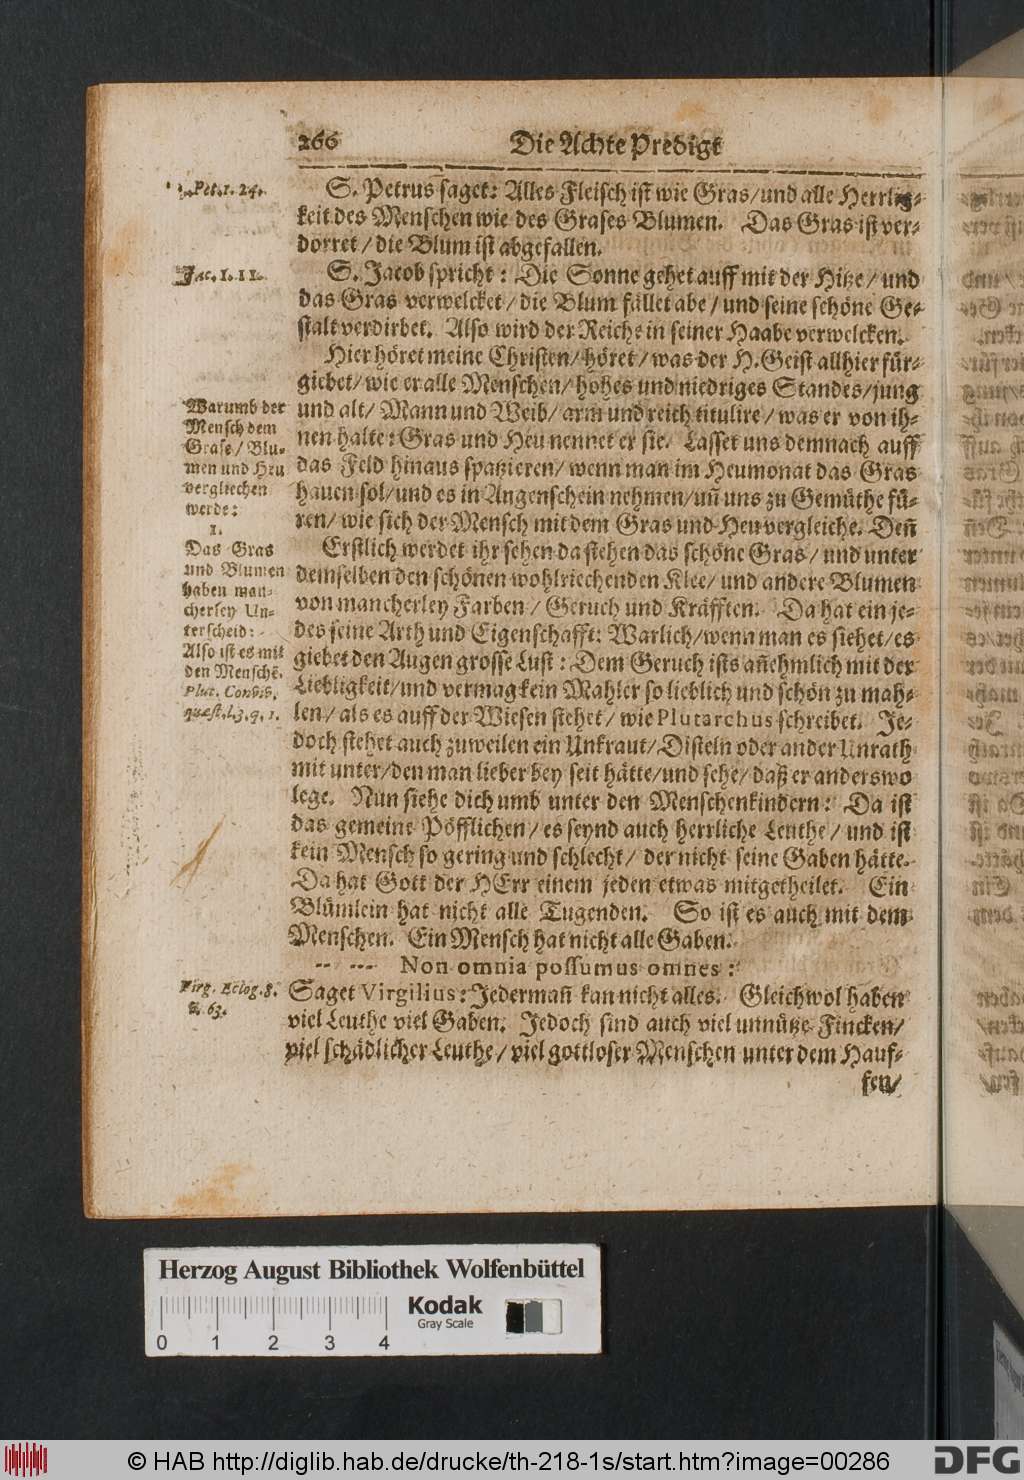 266
Die Achte Predigt
Pet. 1. 24.
S. Petrus saget: Alles Fleisch ist wie Gras/ und alle Herrlig-
keit des Menschen wie des Grases Blumen. Das Gras ist ver-
dorret/ die Blum ist abgefallen.
Jac. 1. 11.
S. Jacob spricht: Die Sonne gehet auff mit der Hitze/ und
das Gras verwelcket/ die Blum fället abe/ und seine schöne Ge-
stalt verdirbet. Also wird der Reiche in seiner Haabe verwelcken.
Hier höret meine Christen/ höret/ was der H. Geist allhier für-
giebet/ wie er alle Menschen/ hohes und niedriges Standes/ jung
und alt/ Mann und Weib/ arm und reich titulire/ was er von ih-
nen halte: Gras und Heu nennet er sie. Lasset uns demnach auff
das Feld hinaus spatzieren/ wenn man im Heumonat das Gras
hauen sol/ und es in Augenschein nehmen/ uñ uns zu Gemüthe fü-
ren/ wie sich der Mensch mit dem Gras und Heu vergleiche. Deñ
Warumb der
Mensch dem
Grase/ Blu-
men und Heu
vergliechen
werde:
1.
Das Gras
und Blumen
haben man-
cherley Un-
terscheid:
Also ist es mit
den Menschē.
Plut. Conviv.
quæst. l. 3. q. 1.
Erstlich werdet ihr sehen da stehen das schöne Gras/ und unter
demselben den schönen wohlriechenden Klee/ und andere Blumen
von mancherley Farben/ Geruch und Kräfften. Da hat ein je-
des seine Arth und Eigenschafft: Warlich/ wenn man es siehet/ es
giebet den Augen grosse Lust: Dem Geruch ists añehmlich mit der
Liebligkeit/ und vermag kein Mahler so lieblich und schön zu mah-
len/ als es auff der Wiesen stehet/ wie Plutarchus schreibet. Je-
doch stehet auch zuweilen ein Unkraut/ Disteln oder ander Unrath
mit unter/ den man lieber bey seit hätte/ und sehe/ daß er anderswo
lege. Nun siehe dich umb unter den Menschenkindern: Da ist
das gemeine Pöfflichen/ es seynd auch herrliche Leuthe/ und ist
kein Mensch so gering und schlecht/ der nicht seine Gaben hätte.
Da hat Gott der HErr einem jeden etwas mitgetheilet. Ein
Blümlein hat nicht alle Tugenden. So ist es auch mit dem
Menschen. Ein Mensch hat nicht alle Gaben.
-- --- Non omnia possumus omnes:
Virg. Eclog. 8.
v. 63.
Saget Virgilius: Jedermañ kan nicht alles. Gleichwol haben
viel Leuthe viel Gaben. Jedoch sind auch viel unnütze Fincken/
viel schädlicher Leuthe/ viel gottloser Menschen unter dem Hauf-
fen/
Herzog August Bibliothek Wolfenbüttel
0 1 2 3 4
Kodak
Gray Scale
© HAB http://diglib.hab.de/drucke/th-218-1s/start.htm?image=00286
DFG